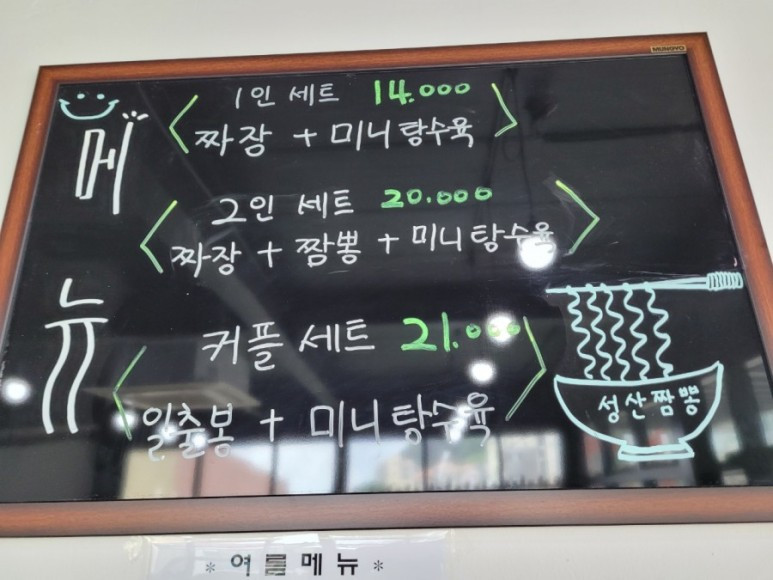 MUNGYO
메뉴
1인 세트 14.000
짜장 + 미니탕수육
2인 세트 20.000
짜장 + 짬뽕 + 미니탕수육
커플 세트 21.000
일출봉 + 미니탕수육
성산짬뽕
* 여름메뉴 *